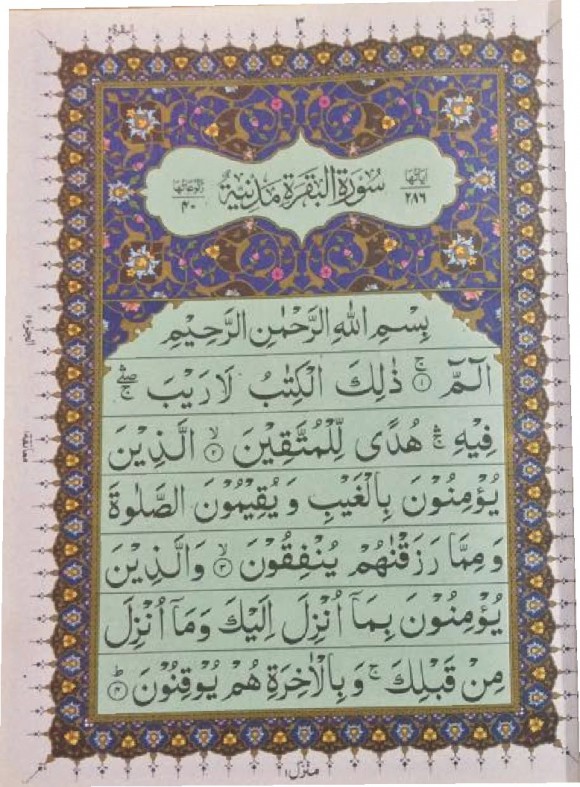 ٣
البقرة٢
الٓمّٓ١
اٰیاتها ٢٨٦
سُوْرَةُ الْبَقَرَةِ مَدَنِيَّةٌ
رکوعاتها ۴۰
بِسْمِ اللّٰهِ الرَّحْمٰنِ الرَّحِيْمِ
الٓمّٓ ۚ﴿۱﴾ ذٰلِكَ الْكِتٰبُ لَا رَيْبَ ۖۛۚ
فِيْهِ ۛۚ هُدًى لِّلْمُتَّقِيْنَ ۙ﴿۲﴾ الَّذِيْنَ
يُؤْمِنُوْنَ بِالْغَيْبِ وَيُقِيْمُوْنَ الصَّلٰوةَ
وَمِمَّا رَزَقْنٰهُمْ يُنْفِقُوْنَ ۙ﴿۳﴾ وَالَّذِيْنَ
يُؤْمِنُوْنَ بِمَاۤ اُنْزِلَ اِلَيْكَ وَمَاۤ اُنْزِلَ
مِنْ قَبْلِكَ ۚ وَبِالْاٰخِرَةِ هُمْ يُوْقِنُوْنَ ؕ﴿۴﴾
منزل١